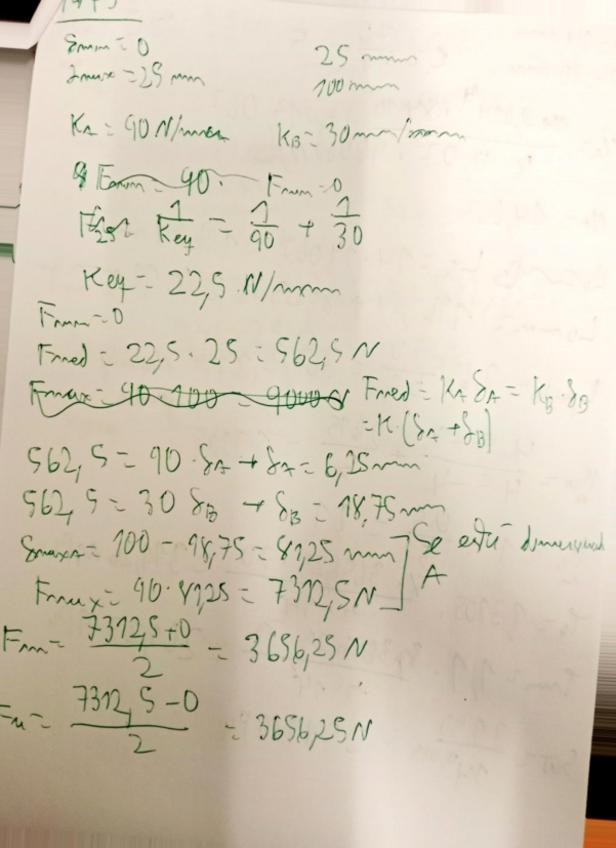 δmin = 0 25 mm
δmax = 25 mm 100 mm
KA = 90 N/mm KB = 30 mm/mm
Fmin = 90. Fmin = 0
1/Keq = 1/90 + 1/30
Keq = 22,5 N/mm
Fmin = 0
Fmed = 22,5 · 25 = 562,5 N
Fmax = 90 · 100 = 9000 N Fmed = KA δA = KB · δB
= K · (δA + δB)
562,5 = 90 · δA → δA = 6,25 mm
562,5 = 30 δB → δB = 18,75 mm
δmaxA = 100 - 18,75 = 81,25 mm Se está
Fmax = 90 · 81,25 = 7312,5 N A
Fm = 7312,5+0/2 = 3656,25 N
Fa = 7312,5-0/2 = 3656,25 N